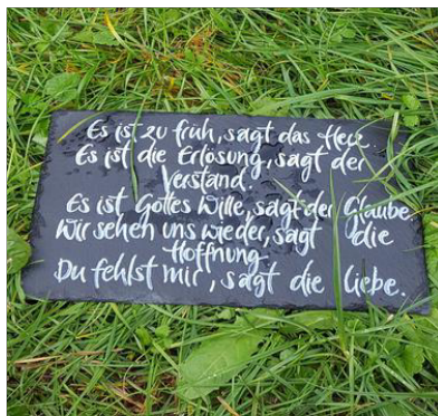 Es ist zu früh, sagt das Herz.
Es ist die Erlösung, sagt der
Verstand.
Es ist Gottes Wille, sagt der Glaube
Wir sehen uns wieder, sagt die
Hoffnung
Du fehlst mir, sagt die Liebe.